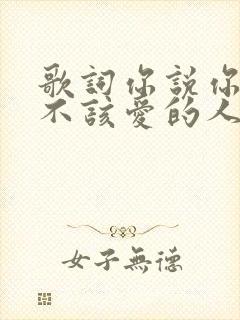 歌詞你説你
不該愛的人
女子無德